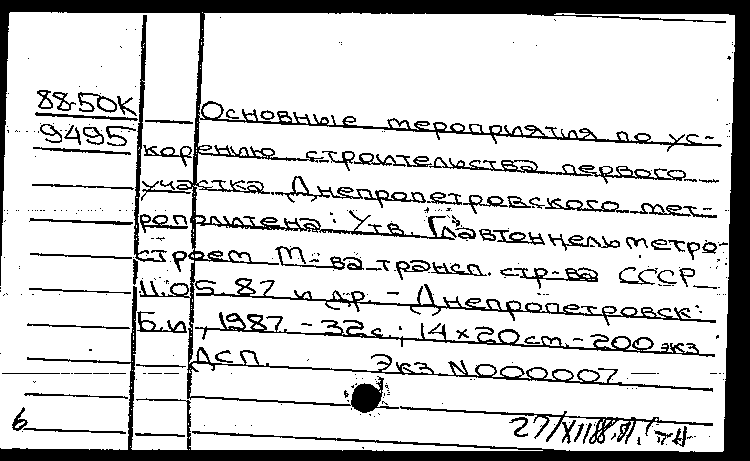 88-50К
9495
Основные мероприятия по ус-
корению строительства первого
участка Днепропетровского мет-
рополитена: Утв. Главтоннельметро-
строем М-ва трансп. стр-ва СССР
11.05.87 и др. - Днепропетровск:
Б.и., 1987. - 32с.; 14×20см. - 200 экз
ДСП. Экз N000007.
6
27/XII88.